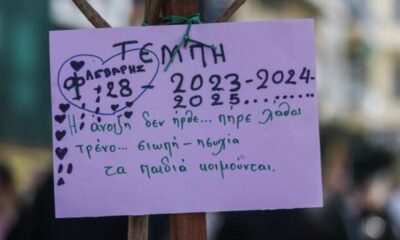 ΤΕΜΠΗ
ΦΛΕΒΑΡΗΣ
28 - 2023-2024-
2025.......
Η άνοιξη δεν ήρθε... πήρε λάθος
τρένο... σιωπή - ησυχία
τα παιδιά κοιμούνται.